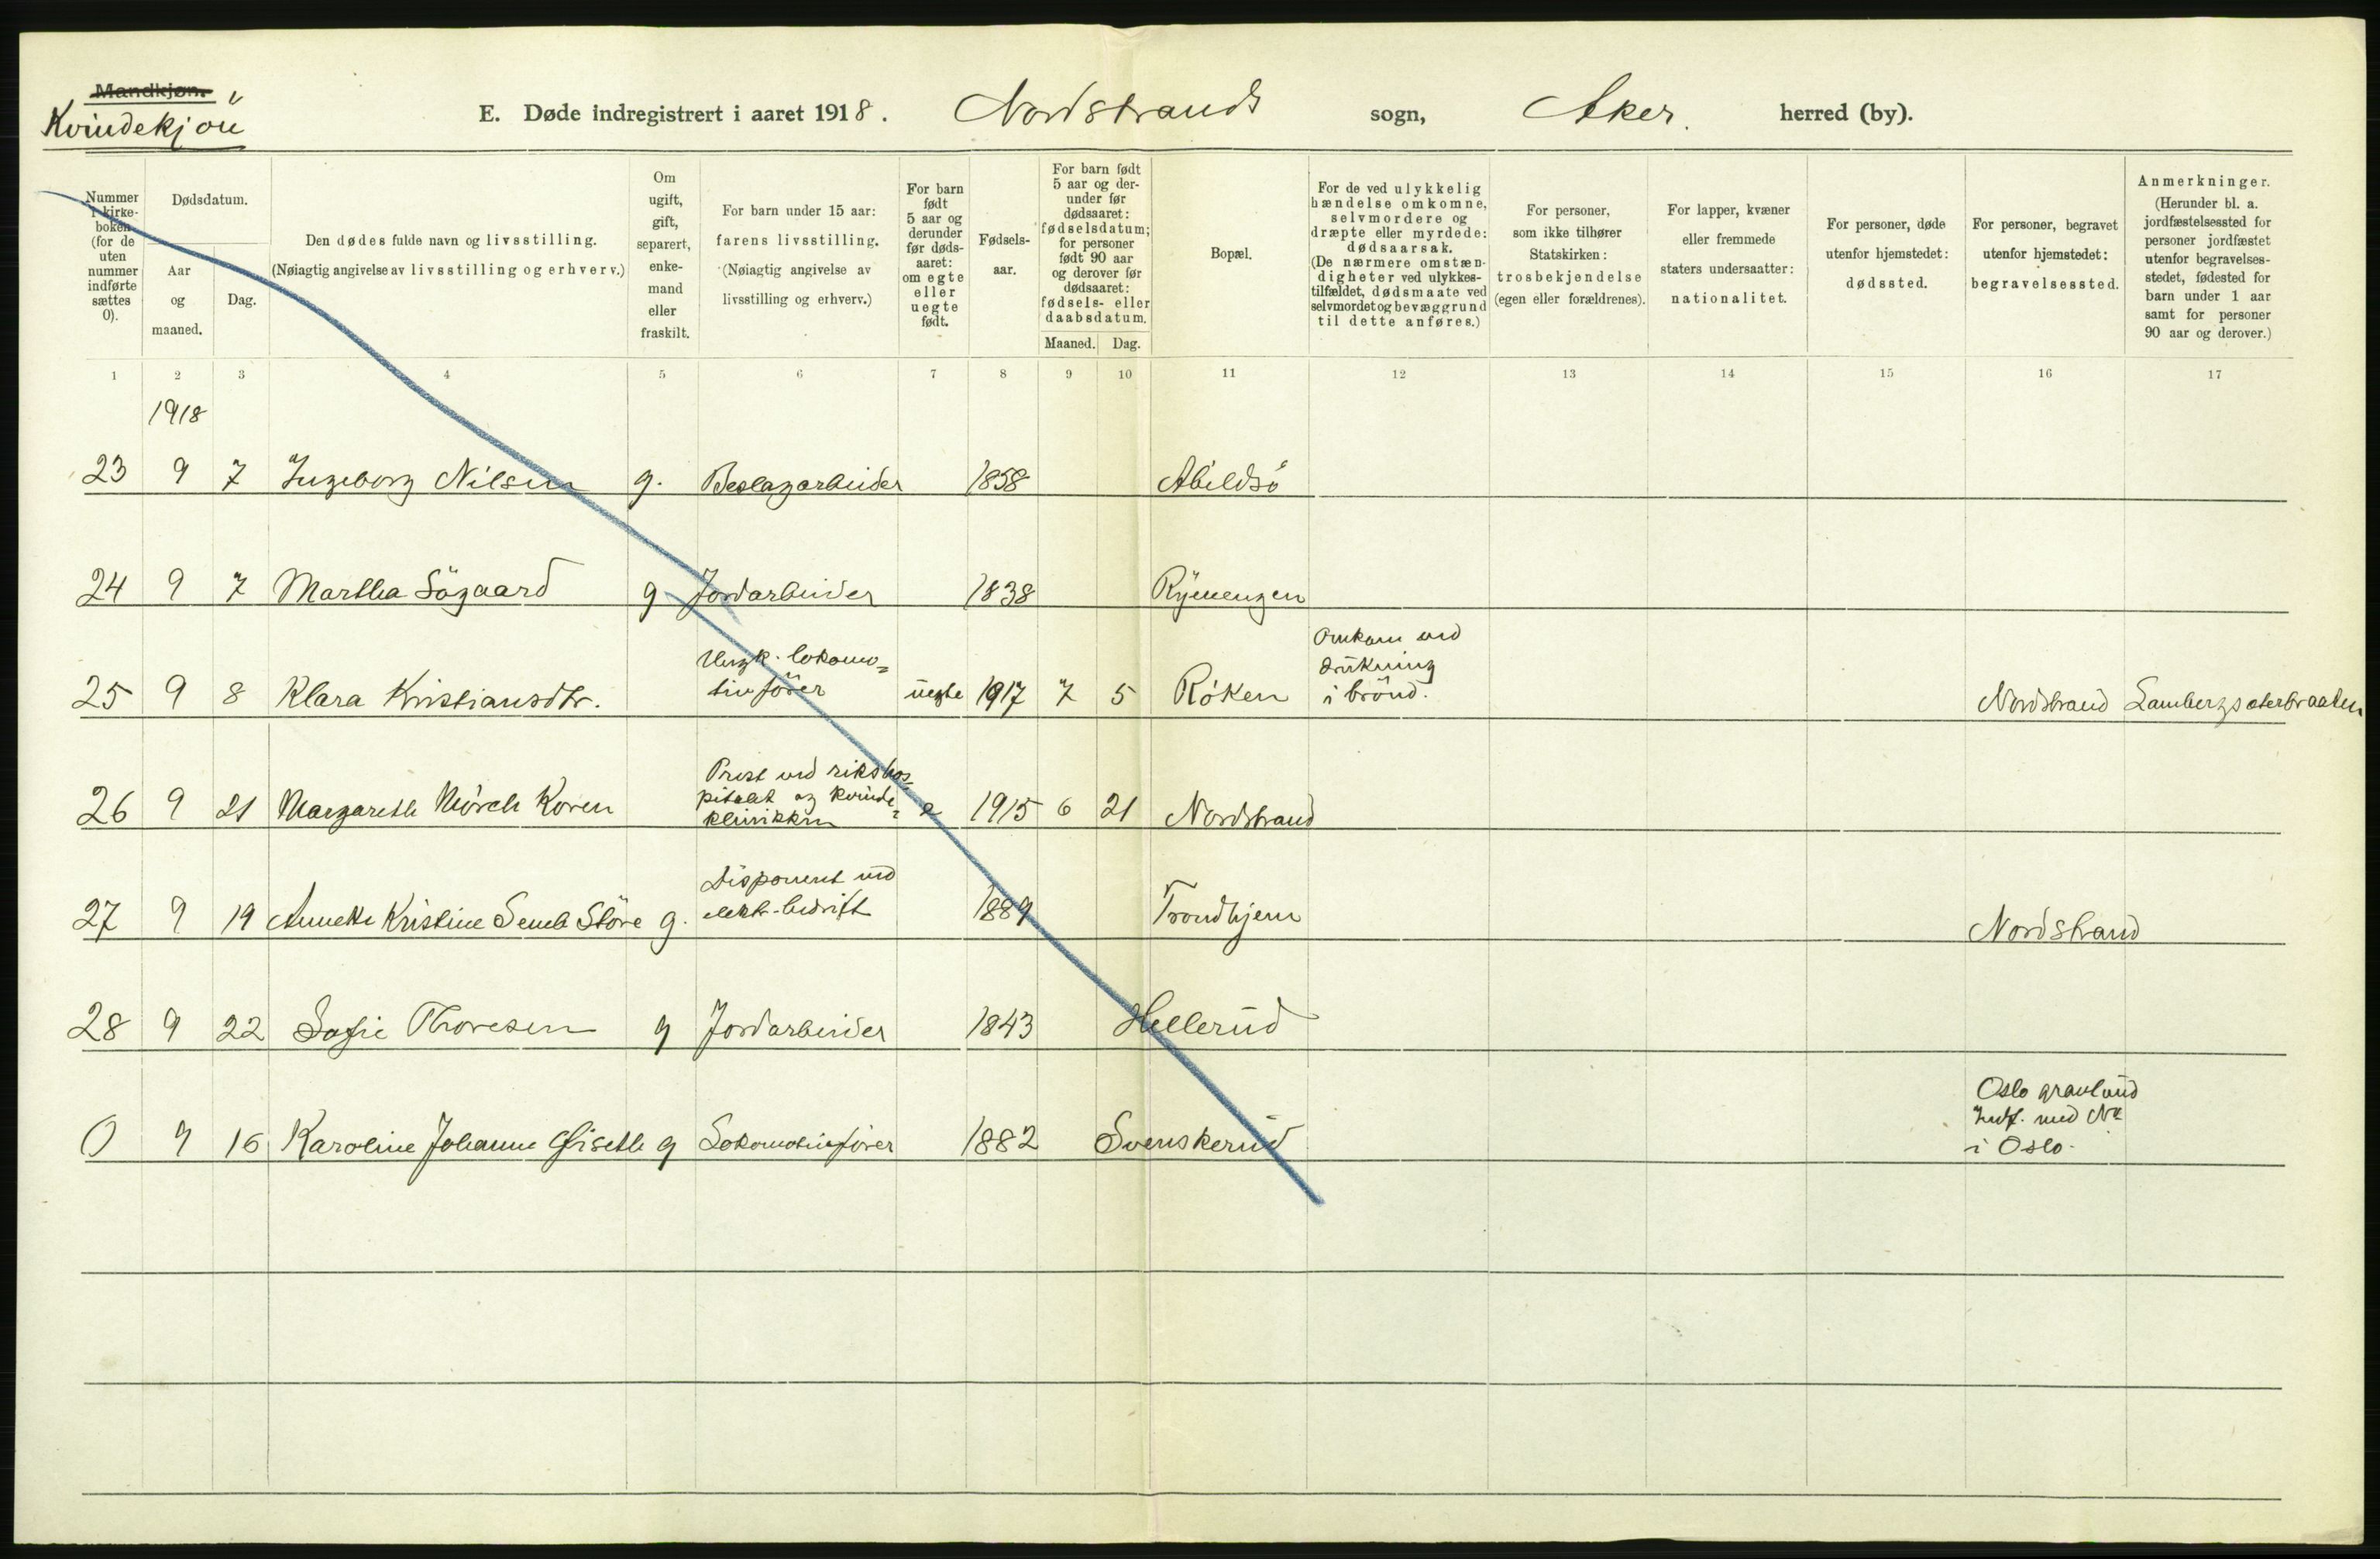 Mandkjøn.
Kvindekjøn
E. Døde indregistrert i aaret 1918. Nordstrands sogn, Aker. herred (by).
Nummer i kirkeboken (for de uten nummer indførte sættes 0).
Dødsdatum.
Aar og maaned.
Dag.
Den dødes fulde navn og livsstilling.
(Nøiagtig angivelse av livsstilling og erhverv.)
Om ugift, gift, separert, enkemand eller fraskilt.
For barn under 15 aar: farens livsstilling.
(Nøiagtig angivelse av livsstilling og erhverv.)
For barn født 5 aar og derunder før dødsaaret: om egte eller uegte født.
Fødselsaar.
For barn født 5 aar og derunder før dødsaaret: fødselsdatum; for personer født 90 aar og derover før dødsaaret: fødsels- eller daabsdatum.
Maaned. Dag.
Bopæl.
For de ved ulykkelig hændelse omkomne, selvmordere og dræpte eller myrdede: dødsaarsak.
(De nærmere omstændigheter ved ulykkestilfældet, dødsmaate ved selvmordet og bevæggrund til dette anføres.)
For personer, som ikke tilhører Statskirken: trosbekjendelse (egen eller forældrenes).
For lapper, kvæner eller fremmede staters undersaatter: nationalitet.
For personer, døde utenfor hjemstedet: dødssted.
For personer, begravet utenfor hjemstedet: begravelsessted.
Anmerkninger.
(Herunder bl. a. jordfæstelsessted for personer jordfæstet utenfor begravelsesstedet, fødested for barn under 1 aar samt for personer 90 aar og derover.)
1 2 3 4 5 6 7 8 9 10 11 12 13 14 15 16 17
1918
23 9 7 Ingeborg Nilsen g. Beslagarbeider 1858 Abildsö
24 9 7 Martha Sögaard g Jordarbeider 1838 Ryenengen
25 9 8 Klara Kristiansdtr. Ungk. lokomotivförer uegte 1917 7 5 Röken Omkom ved drukning i brönd. Nordstrand Lambergsæterbraaten
26 9 21 Margarethe Mörch Koren Prest ved rikshospitalet og kvindeklinikken e 1915 6 21 Nordstrand
27 9 19 Annette Kristine Semb Störe g. Disponent ved elektr. bedrift 1889 Trondhjem Nordstrand
28 9 22 Sofie Thoresen g Jordarbeider 1843 Hellerud
0 9 16 Karoline Johanne g Lokomotivfører 1882 Svenskerud Oslo gravlund Indf. med Nr i Oslo.